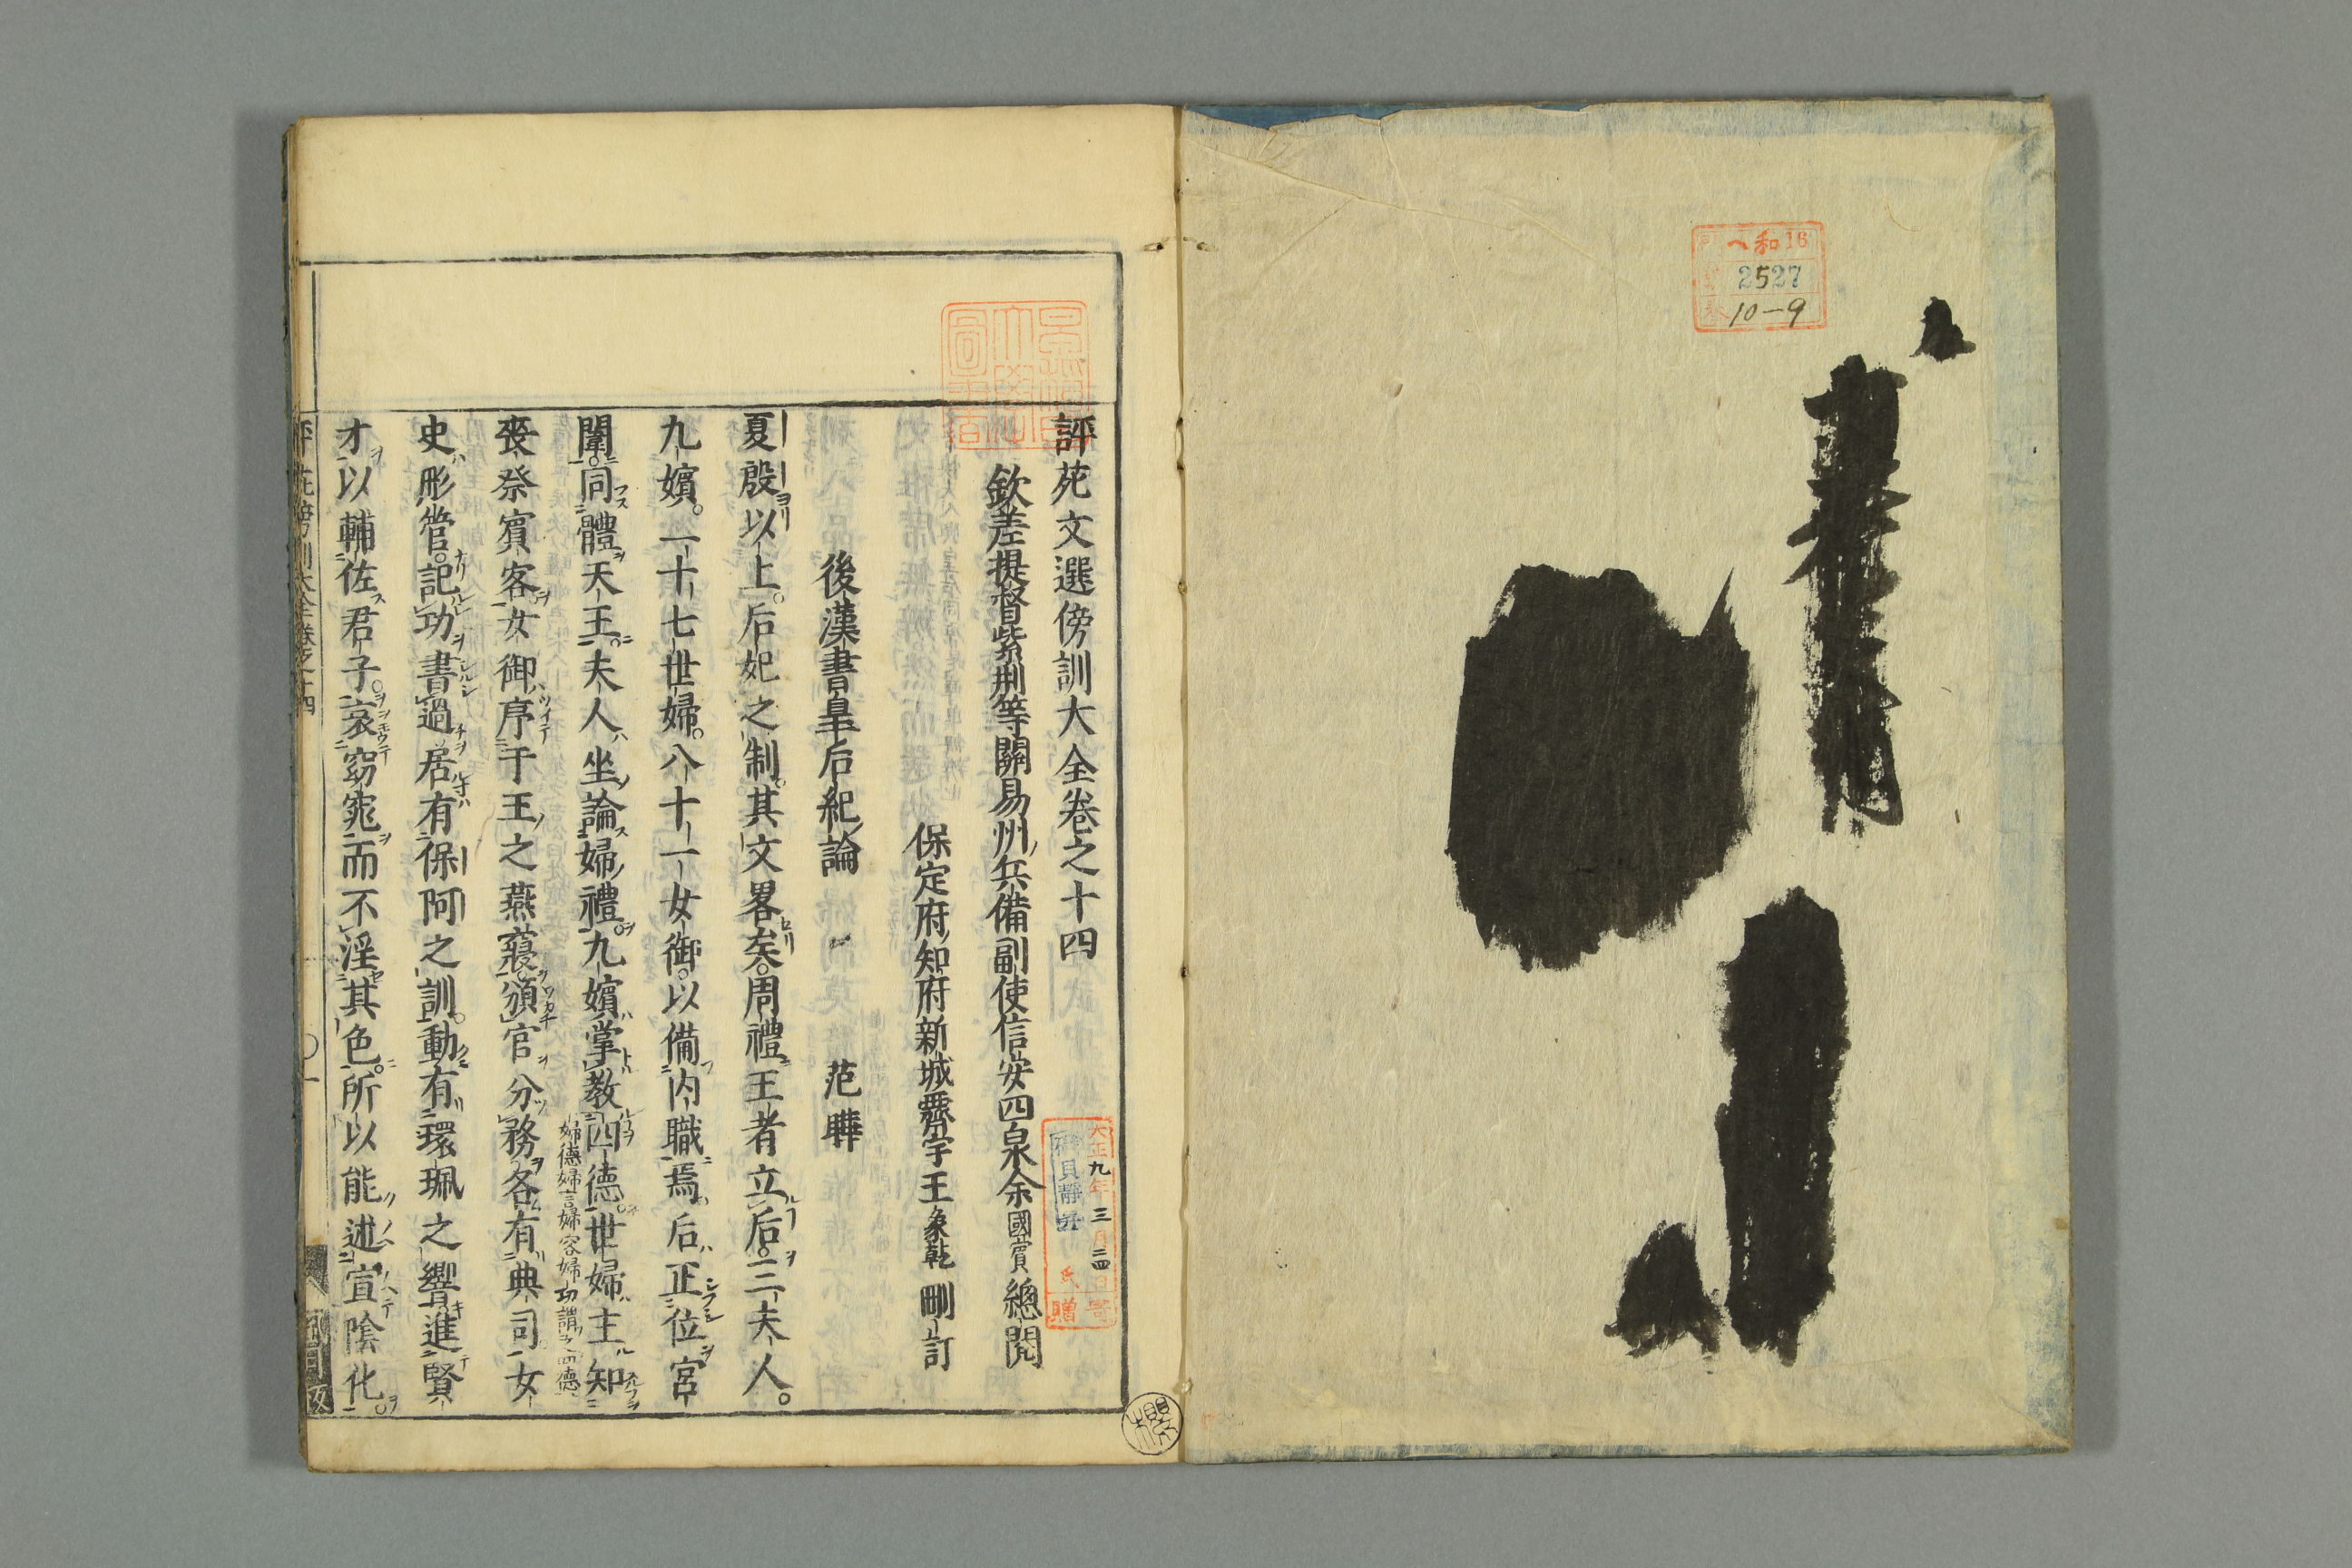 ヘ和16
2527
10-9
評苑文選傍訓大全卷之十四
欽差提督紫荊等關易州兵備副使信安四泉余國賓總閱
保定府知府新城霽宇王象乾刪訂
後漢書皇后紀論　范曄
夏殷以上。后妃之制。其文畧矣。周禮王者立后。三夫人。
九嬪。二十七世婦。八十一女御。以備内職焉。后正位宮
闈。同體天王。夫人坐論婦禮。九嬪掌教四德。世婦主知
婦德婦言婦容婦功謂之四德
喪祭賓客。女御序于王之燕寢。頒官分務。各有典司。女
史彤管。記功書過。居有保阿之訓。動有環珮之響。進賢
才以輔佐君子。哀窈窕而不淫其色。所以能述宣陰化。
大正九年三月二四日寄
氏贈
櫻